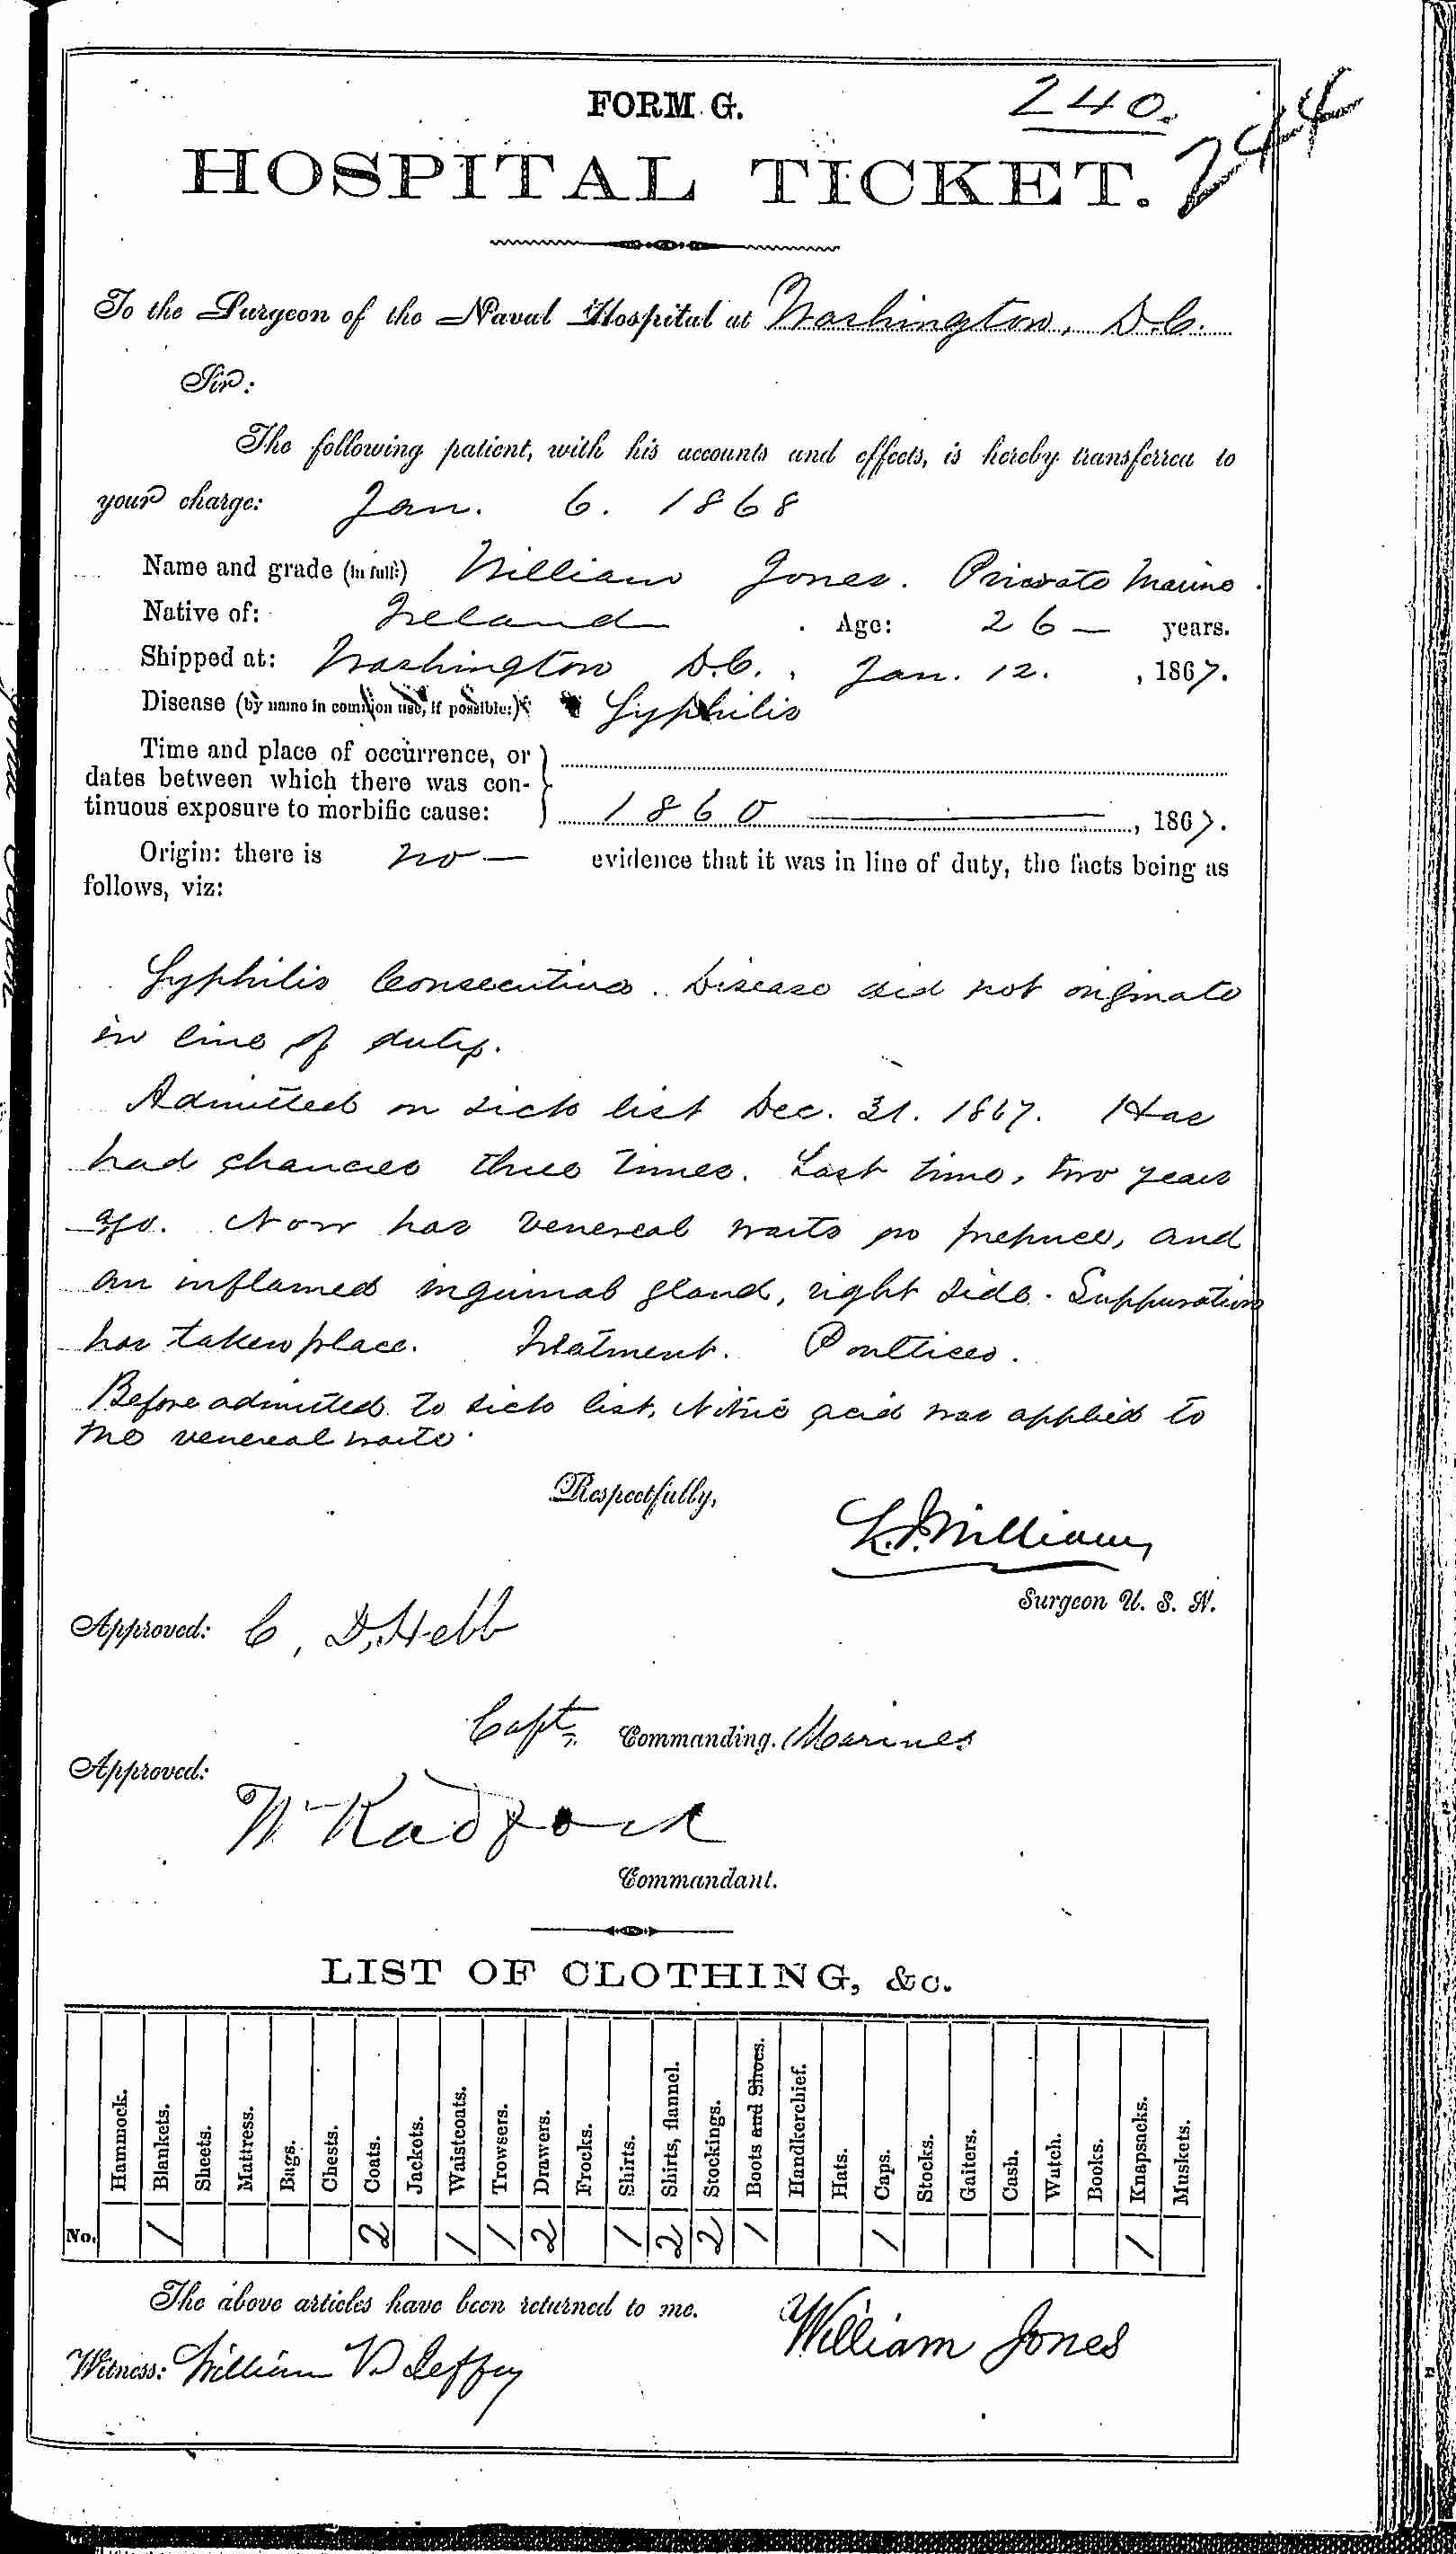 FORM G.
240.
244
HOSPITAL TICKET.
To the Surgeon of the Naval Hospital at Washington, D.C.
Sir:
The following patient, with his accounts and effects, is hereby transferred to
your charge: Jan. 6. 1868
Name and grade (in full:) William Jones. Private Marine.
Native of: Ireland. Age: 26 — years.
Shipped at: Washington D.C., Jan. 12. , 1867.
Disease (by name in common use, if possible:) Syphilis
Time and place of occurrence, or
dates between which there was con-
tinuous exposure to morbific cause: 1860 — , 1867.
Origin: there is no — evidence that it was in line of duty, the facts being as
follows, viz:
Syphilis Consecutiva. Disease did not originate
in line of duty.
Admitted on sick list Dec. 31. 1867. Has
had chancres three times. Last time, two years
ago. Now has venereal warts on prepuce, and
an inflamed inguinal gland, right side. Suppuration
has taken place. Treatment. Poultices.
Before admitted to sick list, Nitric acid was applied to
the venereal warts.
Respectfully,
Surgeon U. S. N.
Approved: C. D. Hebb
Capt. Commanding. Marines
Approved:
W Radford
Commandant.
LIST OF CLOTHING, &c.
Hammock. Blankets. Sheets. Mattress. Bags. Chests. Coats. Jackets. Waistcoats. Trowsers. Drawers. Frocks. Shirts. Shirts, flannel. Stockings. Boots and Shoes. Handkerchief. Hats. Caps. Stocks. Gaiters. Cash. Watch. Books. Knapsacks. Muskets.
No. 1 2 1 1 2 1 2 2 1 1 1
The above articles have been returned to me. William Jones
Witness: William